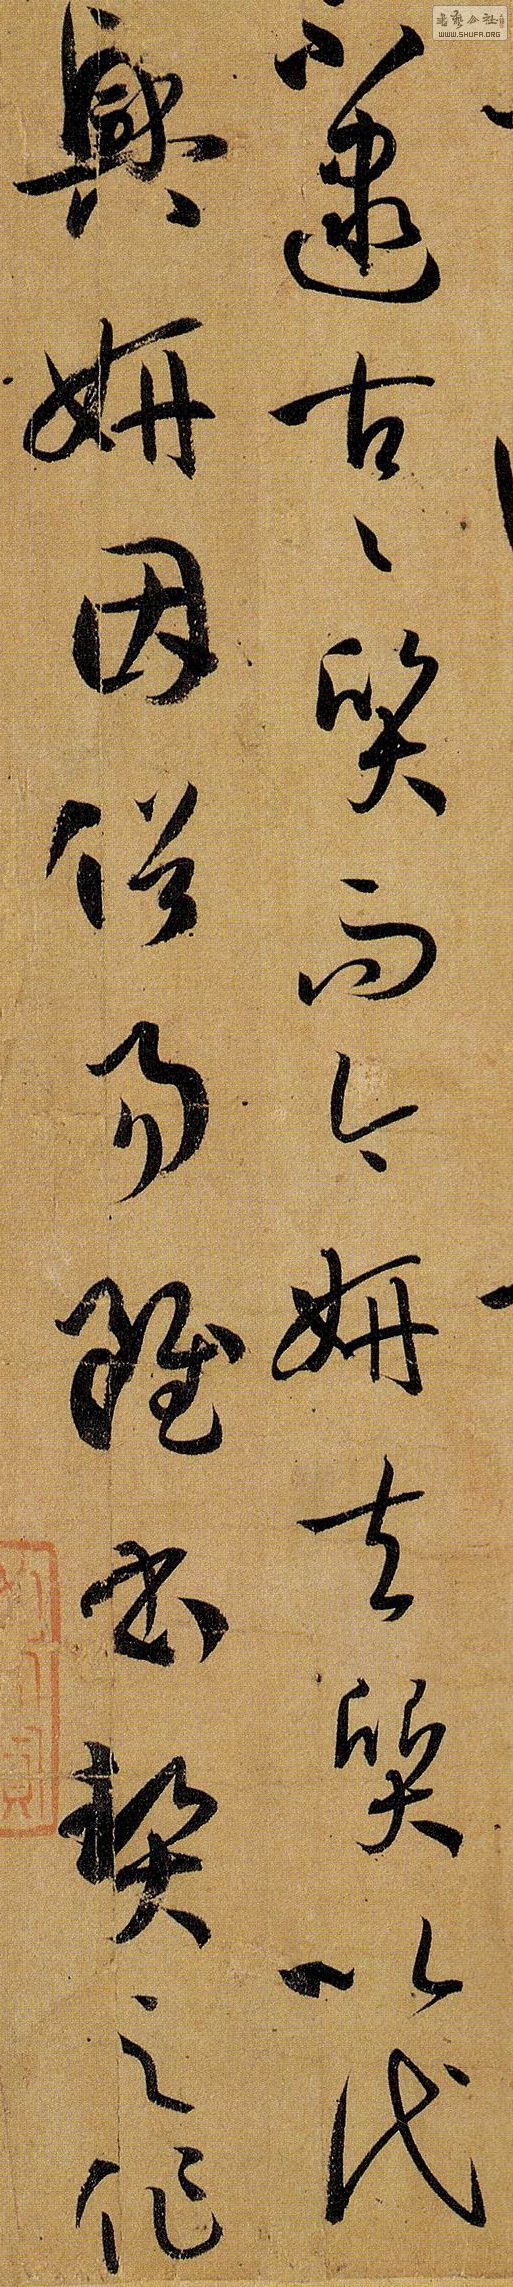 不逮古古質而今妍夫質以代
興妍因俗易雖書契之作
WWW.SHUFA.ORG